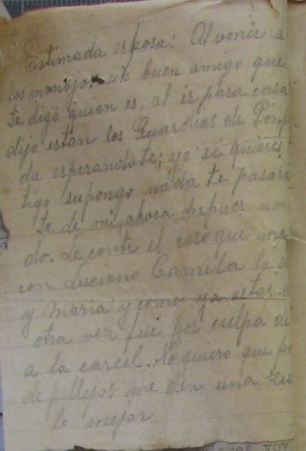 Estimada esposa: Al venir a
los manojos un buen amigo que
te digo quien es, al ir para casa
dijo estan los Guardias de Pon
da esperandote; yo si quieres
tigo supongo nada te pasara
te di mi ahora despues
do. Le conte el caso que me
con Luciano Camila la
y Maria y como ya estas
otra vez fui por culpa de
a la carcel. No quiero que
de pellejos me den una
lo mejor